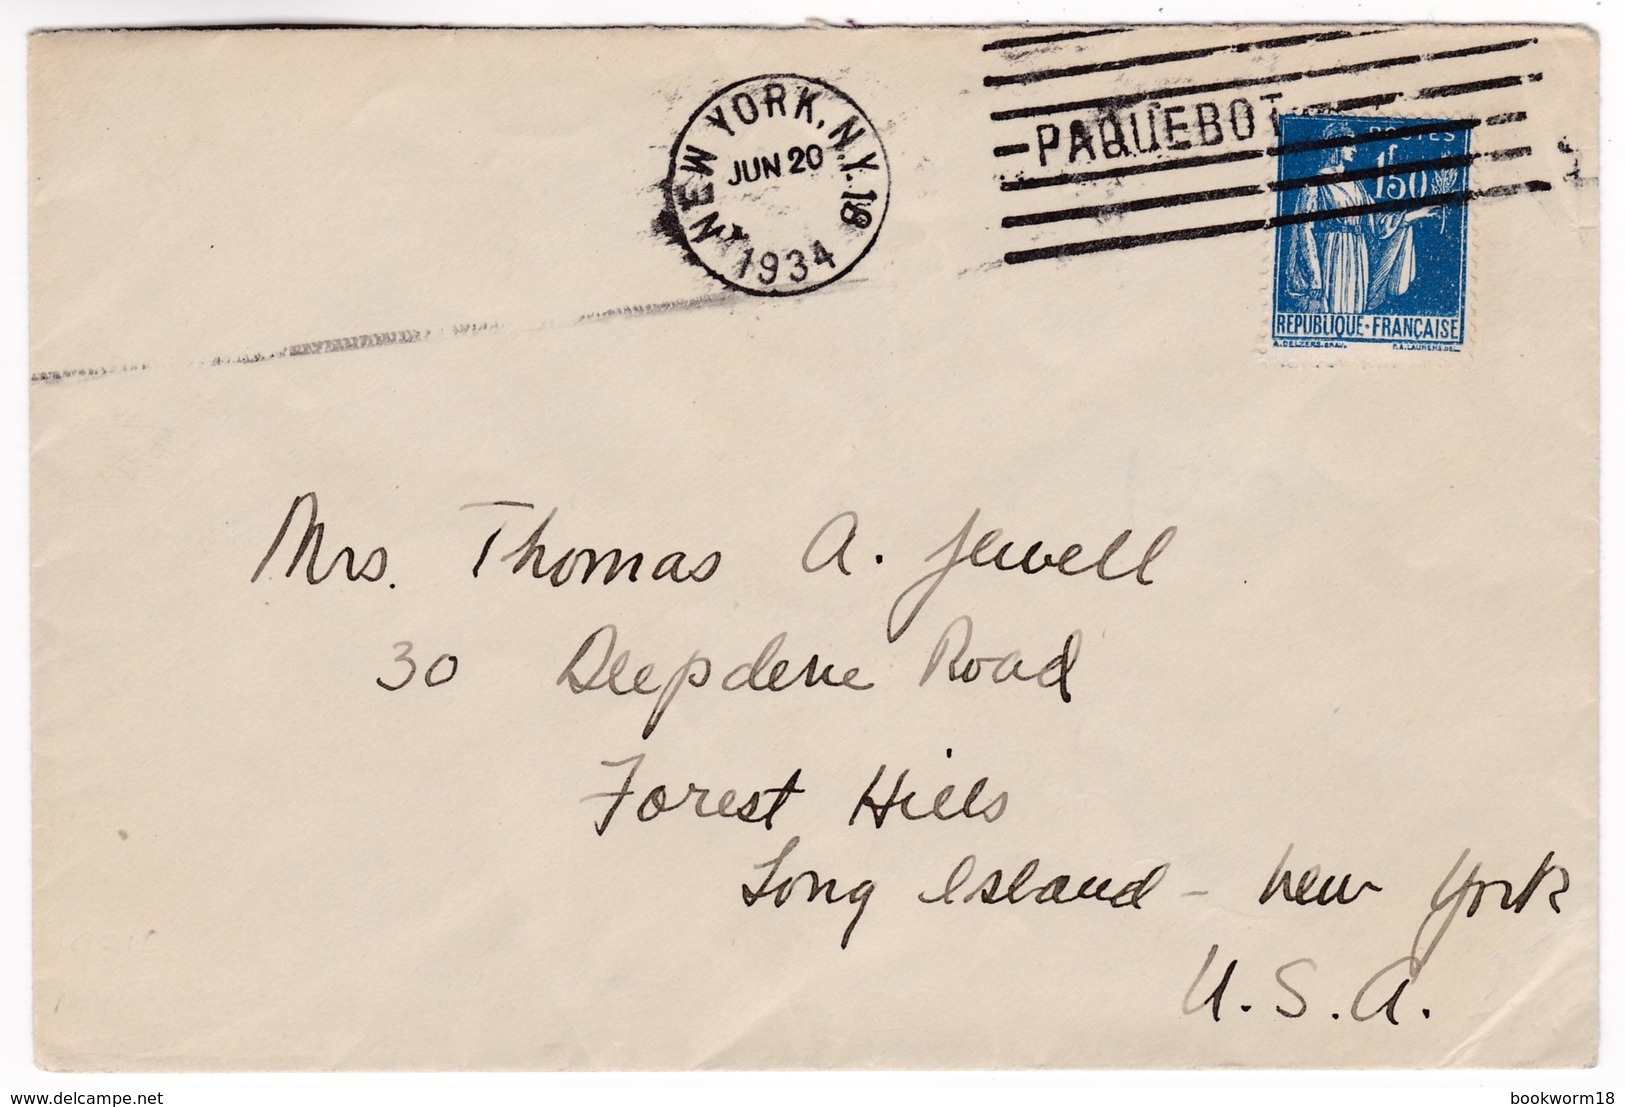 NEW YORK, N.Y. 18
JUN 20
1934
PAQUEBOT
POSTES
1F50
REPUBLIQUE·FRANÇAISE
Mrs. Thomas A. Jewell
30 Deepdene Road
Forest Hills
Long Island - New York
U.S.A.
www.delcampe.net
bookworm18